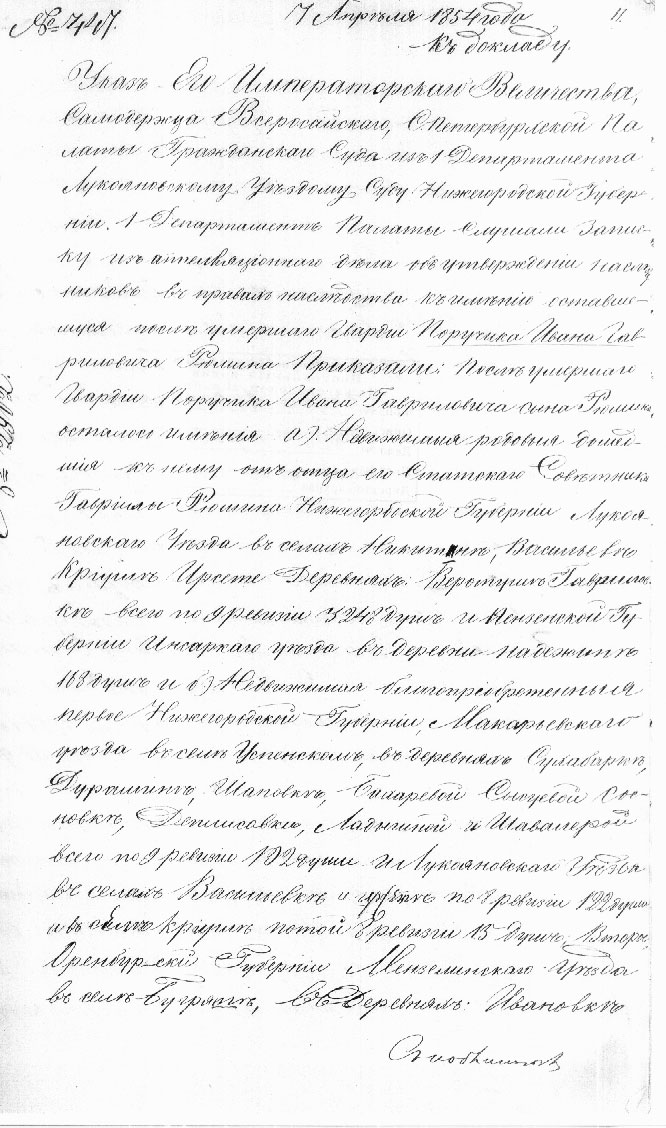 7 Апрѣля 1854 года
11.
Къ докладу.
Указъ Его Императорскаго Величества,
Самодержца Всеросайскаго, С. Петербургской Па-
латы Гражданскаго Суда изъ 1 Департамента
Лукояновскому Уѣздому Суду Нижегородской Губер-
ніи. 1 Департаментъ Палаты Слушали Запис-
ку изъ аппеляціоннаго дѣла объ утвержденіи наслѣд
никовъ въ правахъ наслѣдства къ имѣнію оставше-
муся послѣ умершаго Гвардіи Поручика Ивана Гав
риловича Рюмина Приказали: Послѣ умершаго
Гвардіи Поручика Ивана Гавриловича сына Рюмина
осталось имѣнія а) Недвижимыя родовыя дошед-
шія къ нему отъ отца его Статскаго Совѣтника
Гаврилы Рюмина Нижегородской Губерніи Лукоя-
новскаго Уѣзда въ селахъ Никитинѣ, Васильевкѣ
Кріушѣ Ирсете Деревняхъ: Гаврилов-
кѣ всего по 9 ревизіи 3248 душъ и Пензенской Гу-
берніи Инсаркаго уѣзда въ деревни Надежинѣ
168 душъ и б) Недвижимая благопріобретенныя
первое Нижегородской Губерніи, Макарьевскаго
уѣзда въ селѣ Успенскомъ, въ деревняхъ
Шаповкѣ, Сос-
новкѣ, Ладыгиной и
всего по 9 ревизіи 192 души и Лукояновскаго Уѣзда
въ селахъ Васильевкѣ и по 8 ревизіи 122 души
а въ селѣ Кріушѣ по той 8 ревизіи 15 душъ; Второе
Оренбургской Губерніи Мензелинскаго Уѣзда
въ селѣ Съ Деревнями: Ивановкѣ